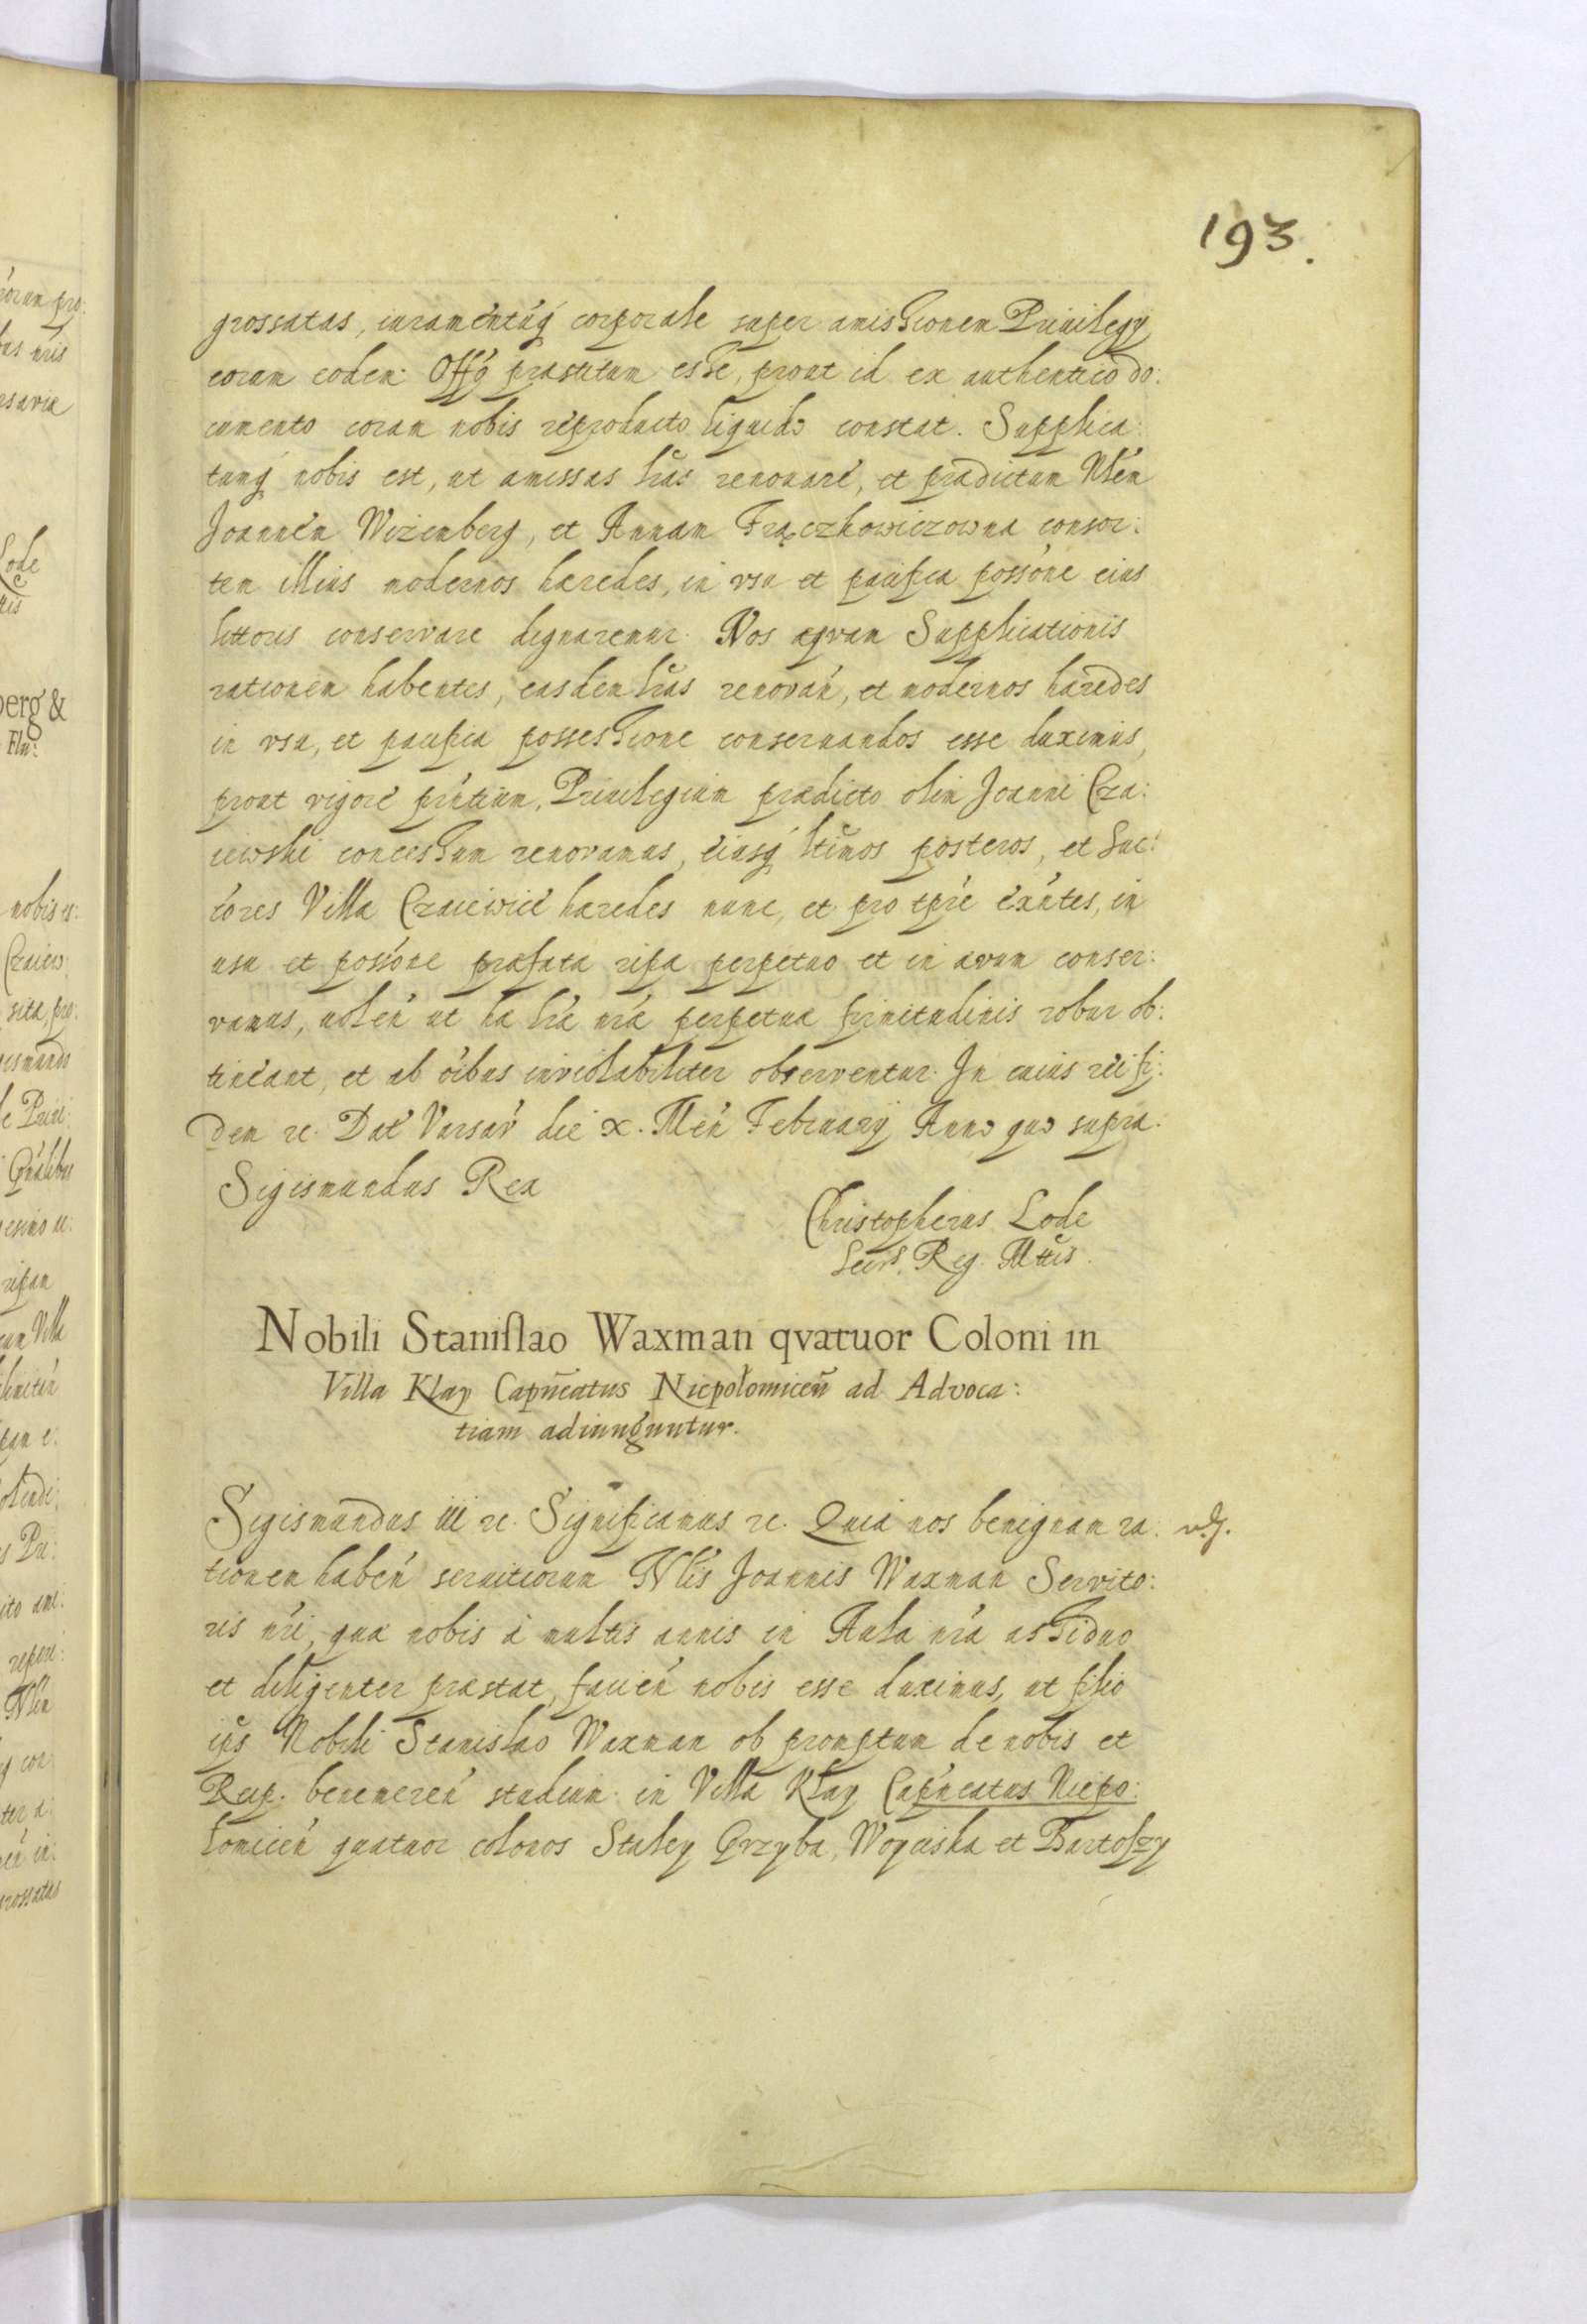 193.
grossatas, iuramentuq́ corporale super amissionem Priuilegy
coram eodem Offo præstitum esse, prout id ex authentico do:
cumento coram nobis reproducto liquido constat. Supplica:
tumq́ nobis est, ut amissas lras renouare, et prædictum Nlem
Joannem Wizemberg, et Annam Frączkowiczowna consor:
tem illius modernos hæredes, in vsu et pacifica possone eius
littoris conservare dignaremur. Nos æqvam Supplicationis
rationem habentes, easdem lras renovań, et modernos hæredes
in vsu, et pacifica possessione conseruandos esse duximus,
prout vigore pntium, Priuilegium prædicto olim Joanni Cza:
iewski concessum renovamus, eiusq́ ltimos posteros, et Suc:
cores Villæ Czaiewice hæredes nunc, et pro tpre exntes, in
usu et possone præfata ripæ perpetuo et in ævum conser:
vamus, uoleń ut hæ lræ nræ perpetuæ firmitudinis robur ob:
tineant, et ab oibus inviolabiliter observentur. In cuius rei fi:
dem &c. Dat Varsav́ die X. Meń February Anno quo supra.
Sigismundus Rex
Christopherus Lode
Secrs. Reg. Mttis.
Nobili Stanislao Waxman qvatuor Coloni in
Villa Kłay Capn̄eatus Niepołomiceń ad Advoca:
tiam adiunguntur.
Sigismundus III &c. Significamus &c. Quia nos benignam ra:
tionem habeń seruitiorum Nlis Joannis Waxman Servito:
ris nri, quæ nobis à multis annis in Aula nra assiduo
et diligenter præstat, facień nobis esse duximus, ut filio
ijs Nobili Stanislao Waxman ob promptum de nobis et
Rep. benemereń studium in Villa Kłay Capńeatus Niepo:
łomiceń quatuor colonos Stuley Grzyba, Woyciska et Bartoszy